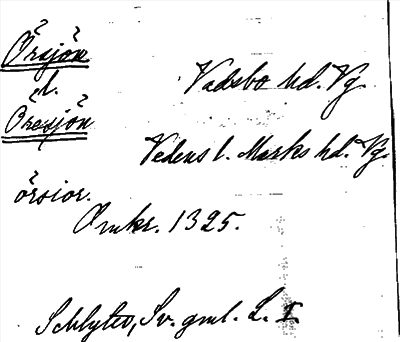 Örsjön
d.
Öresjön
Vadsbo hd. Vg.
Vedens l. Marks hd. Vg.
örsior.
Omkr. 1325.
Schlyter, Sv. gml. L. I